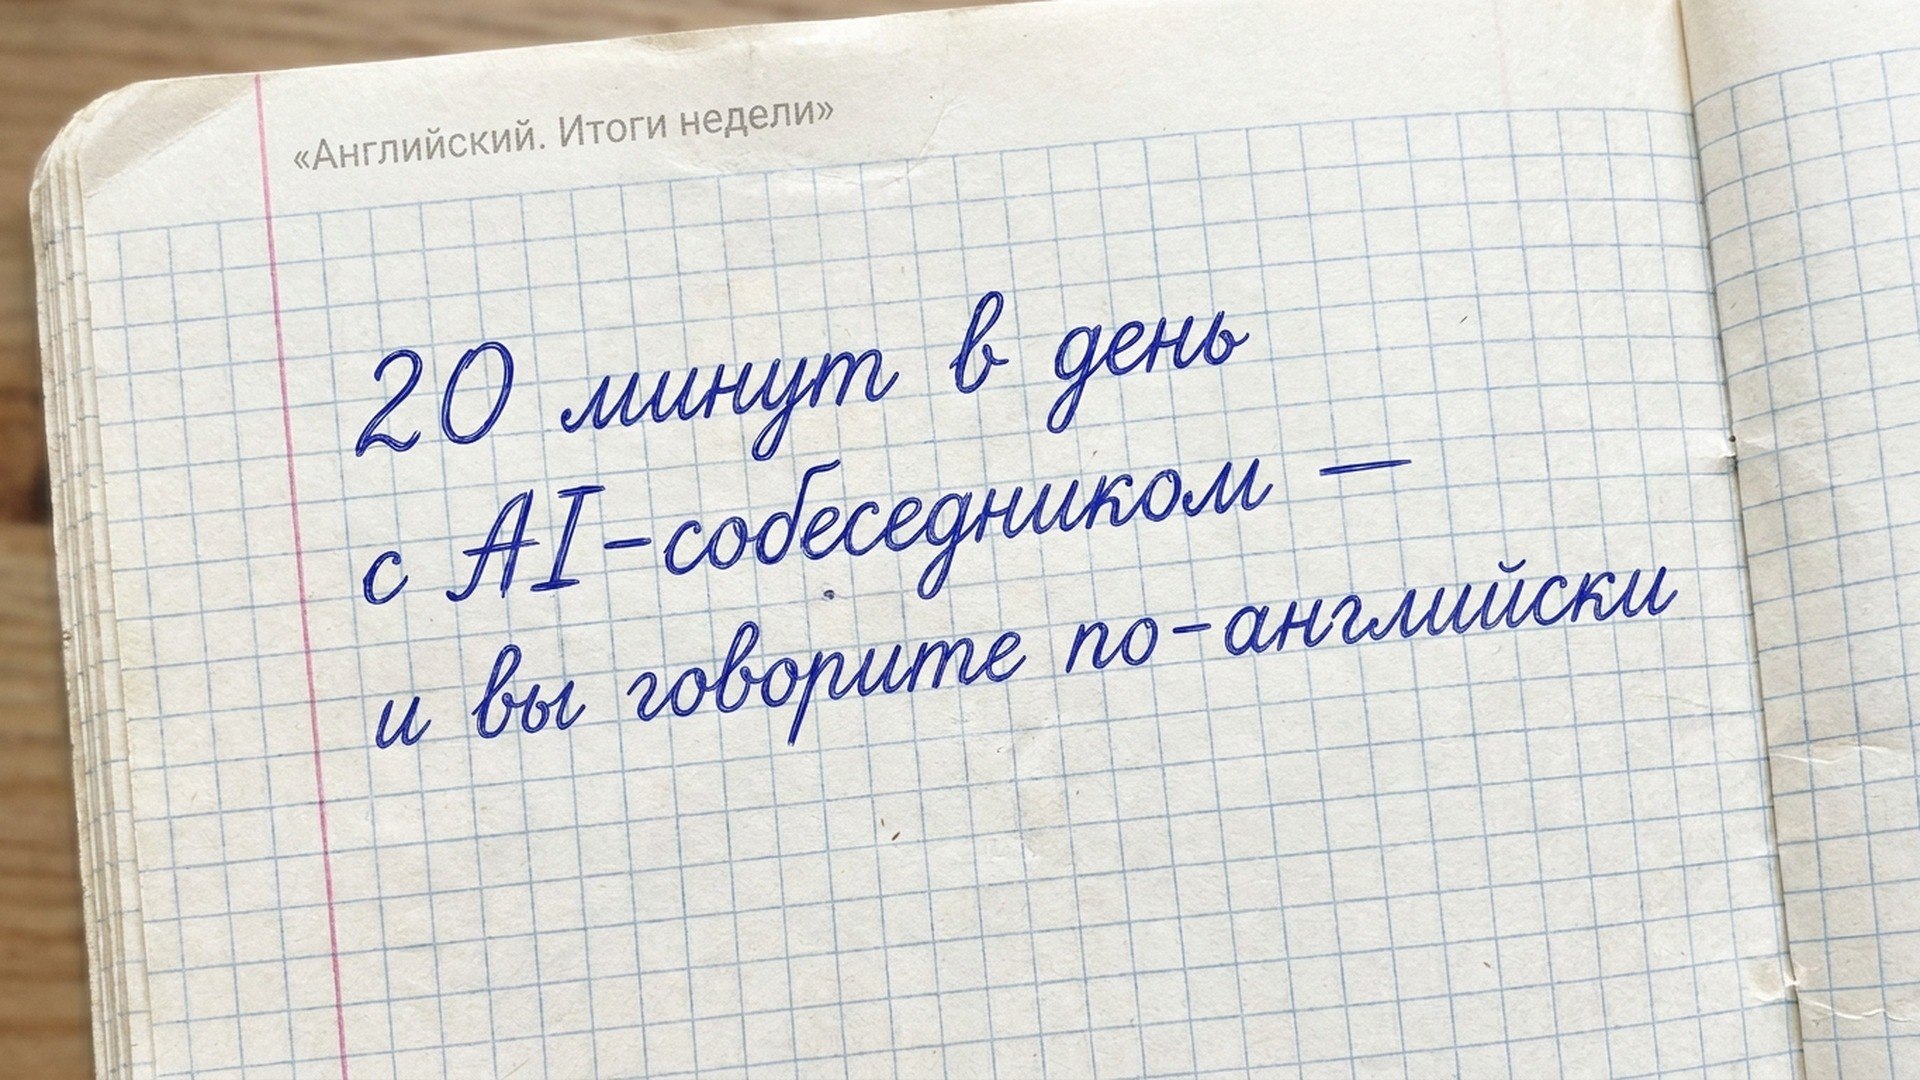 «Английский. Итоги недели»
20 минут в день
с AI-собеседником —
и вы говорите по-английски